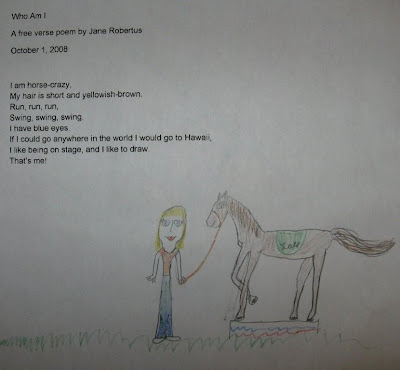 Who Am I
A free verse poem by Jane Robertus
October 1, 2008
I am horse-crazy,
My hair is short and yellowish-brown.
Run, run, run,
Swing, swing, swing.
I have blue eyes.
If I could go anywhere in the world I would go to Hawaii,
I like being on stage, and I like to draw.
That's me!